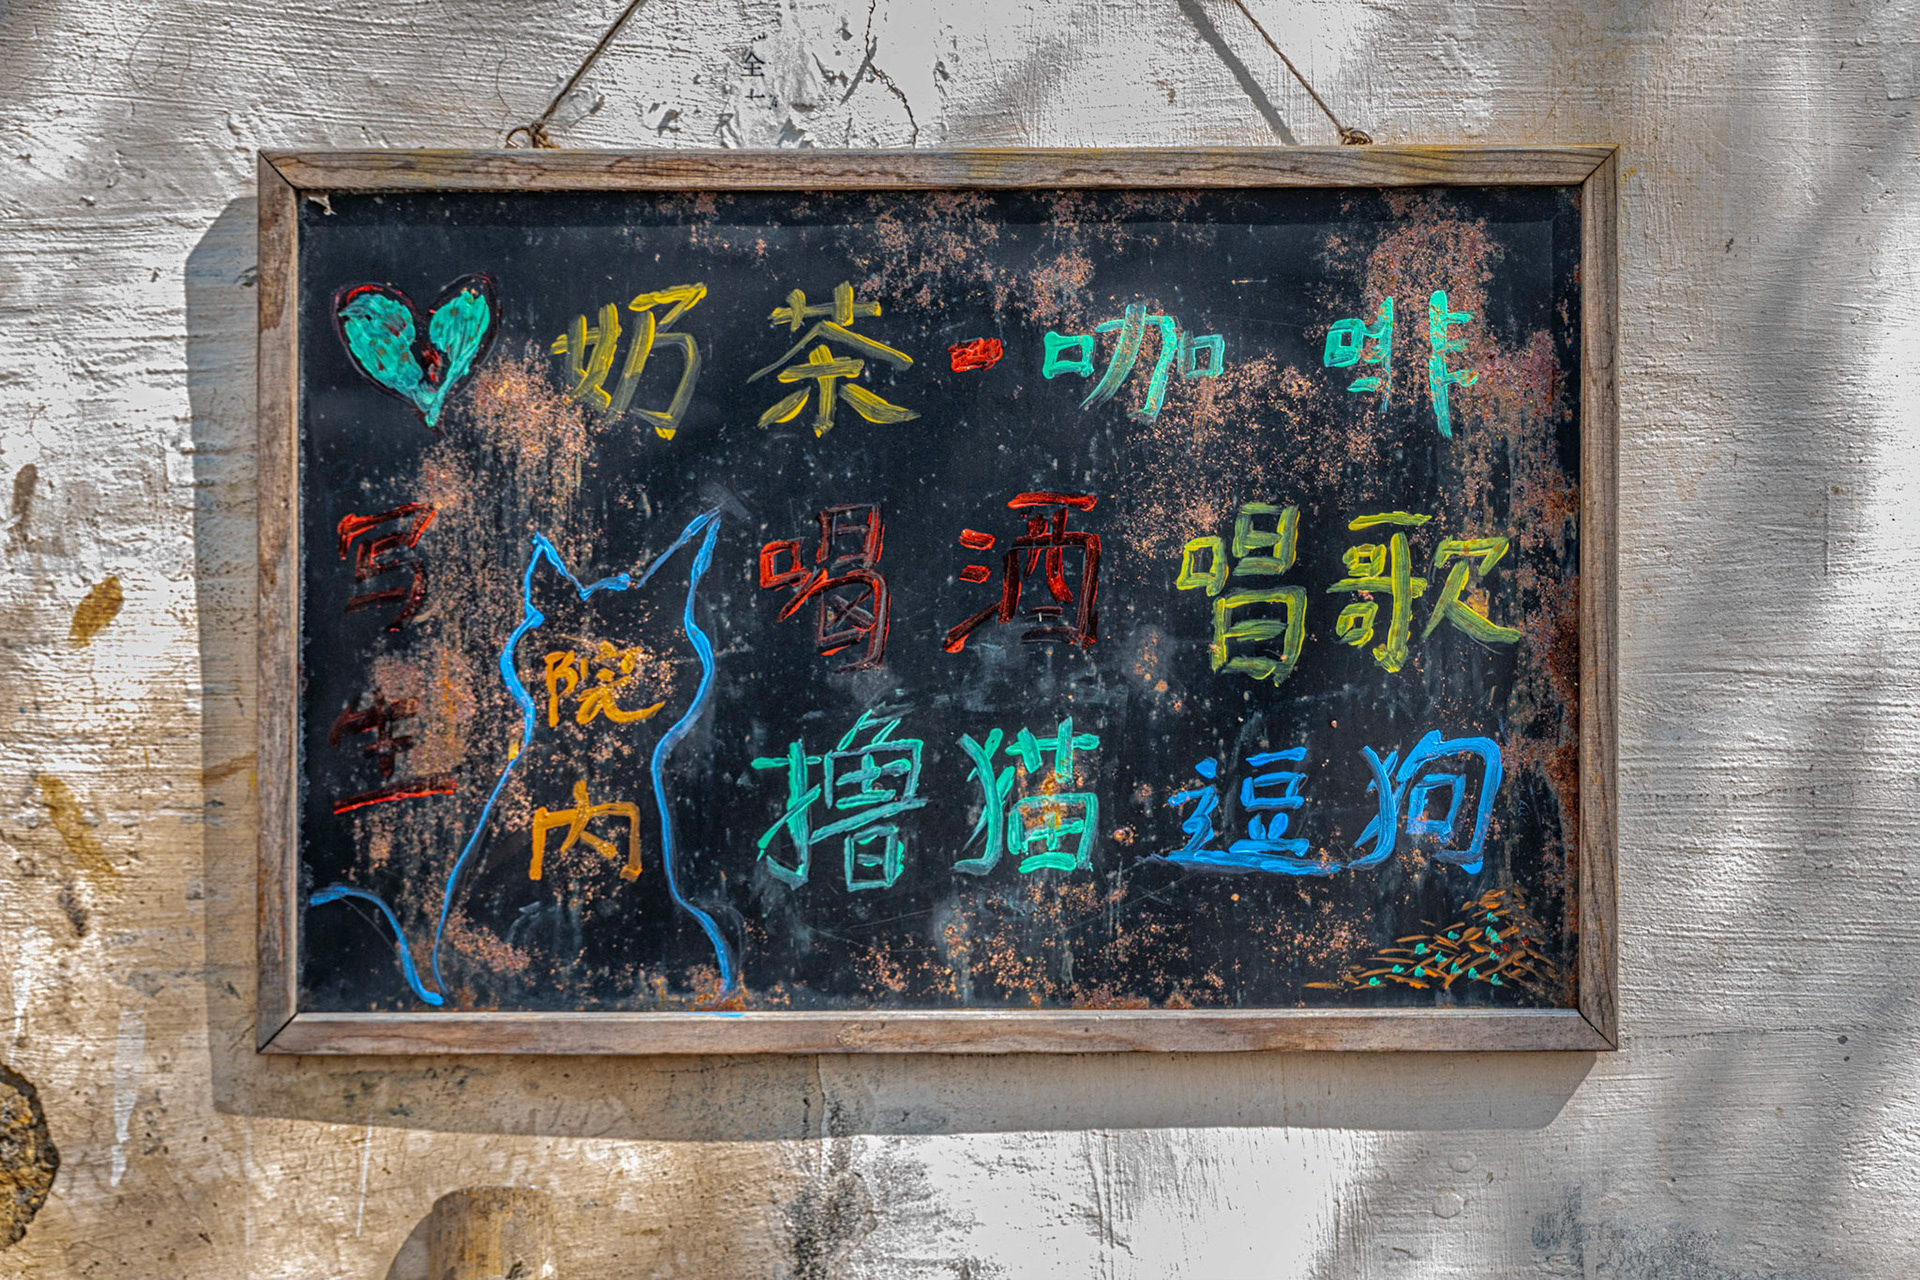 奶茶·咖啡
写生
院内
喝酒 唱歌
撸猫 逗狗